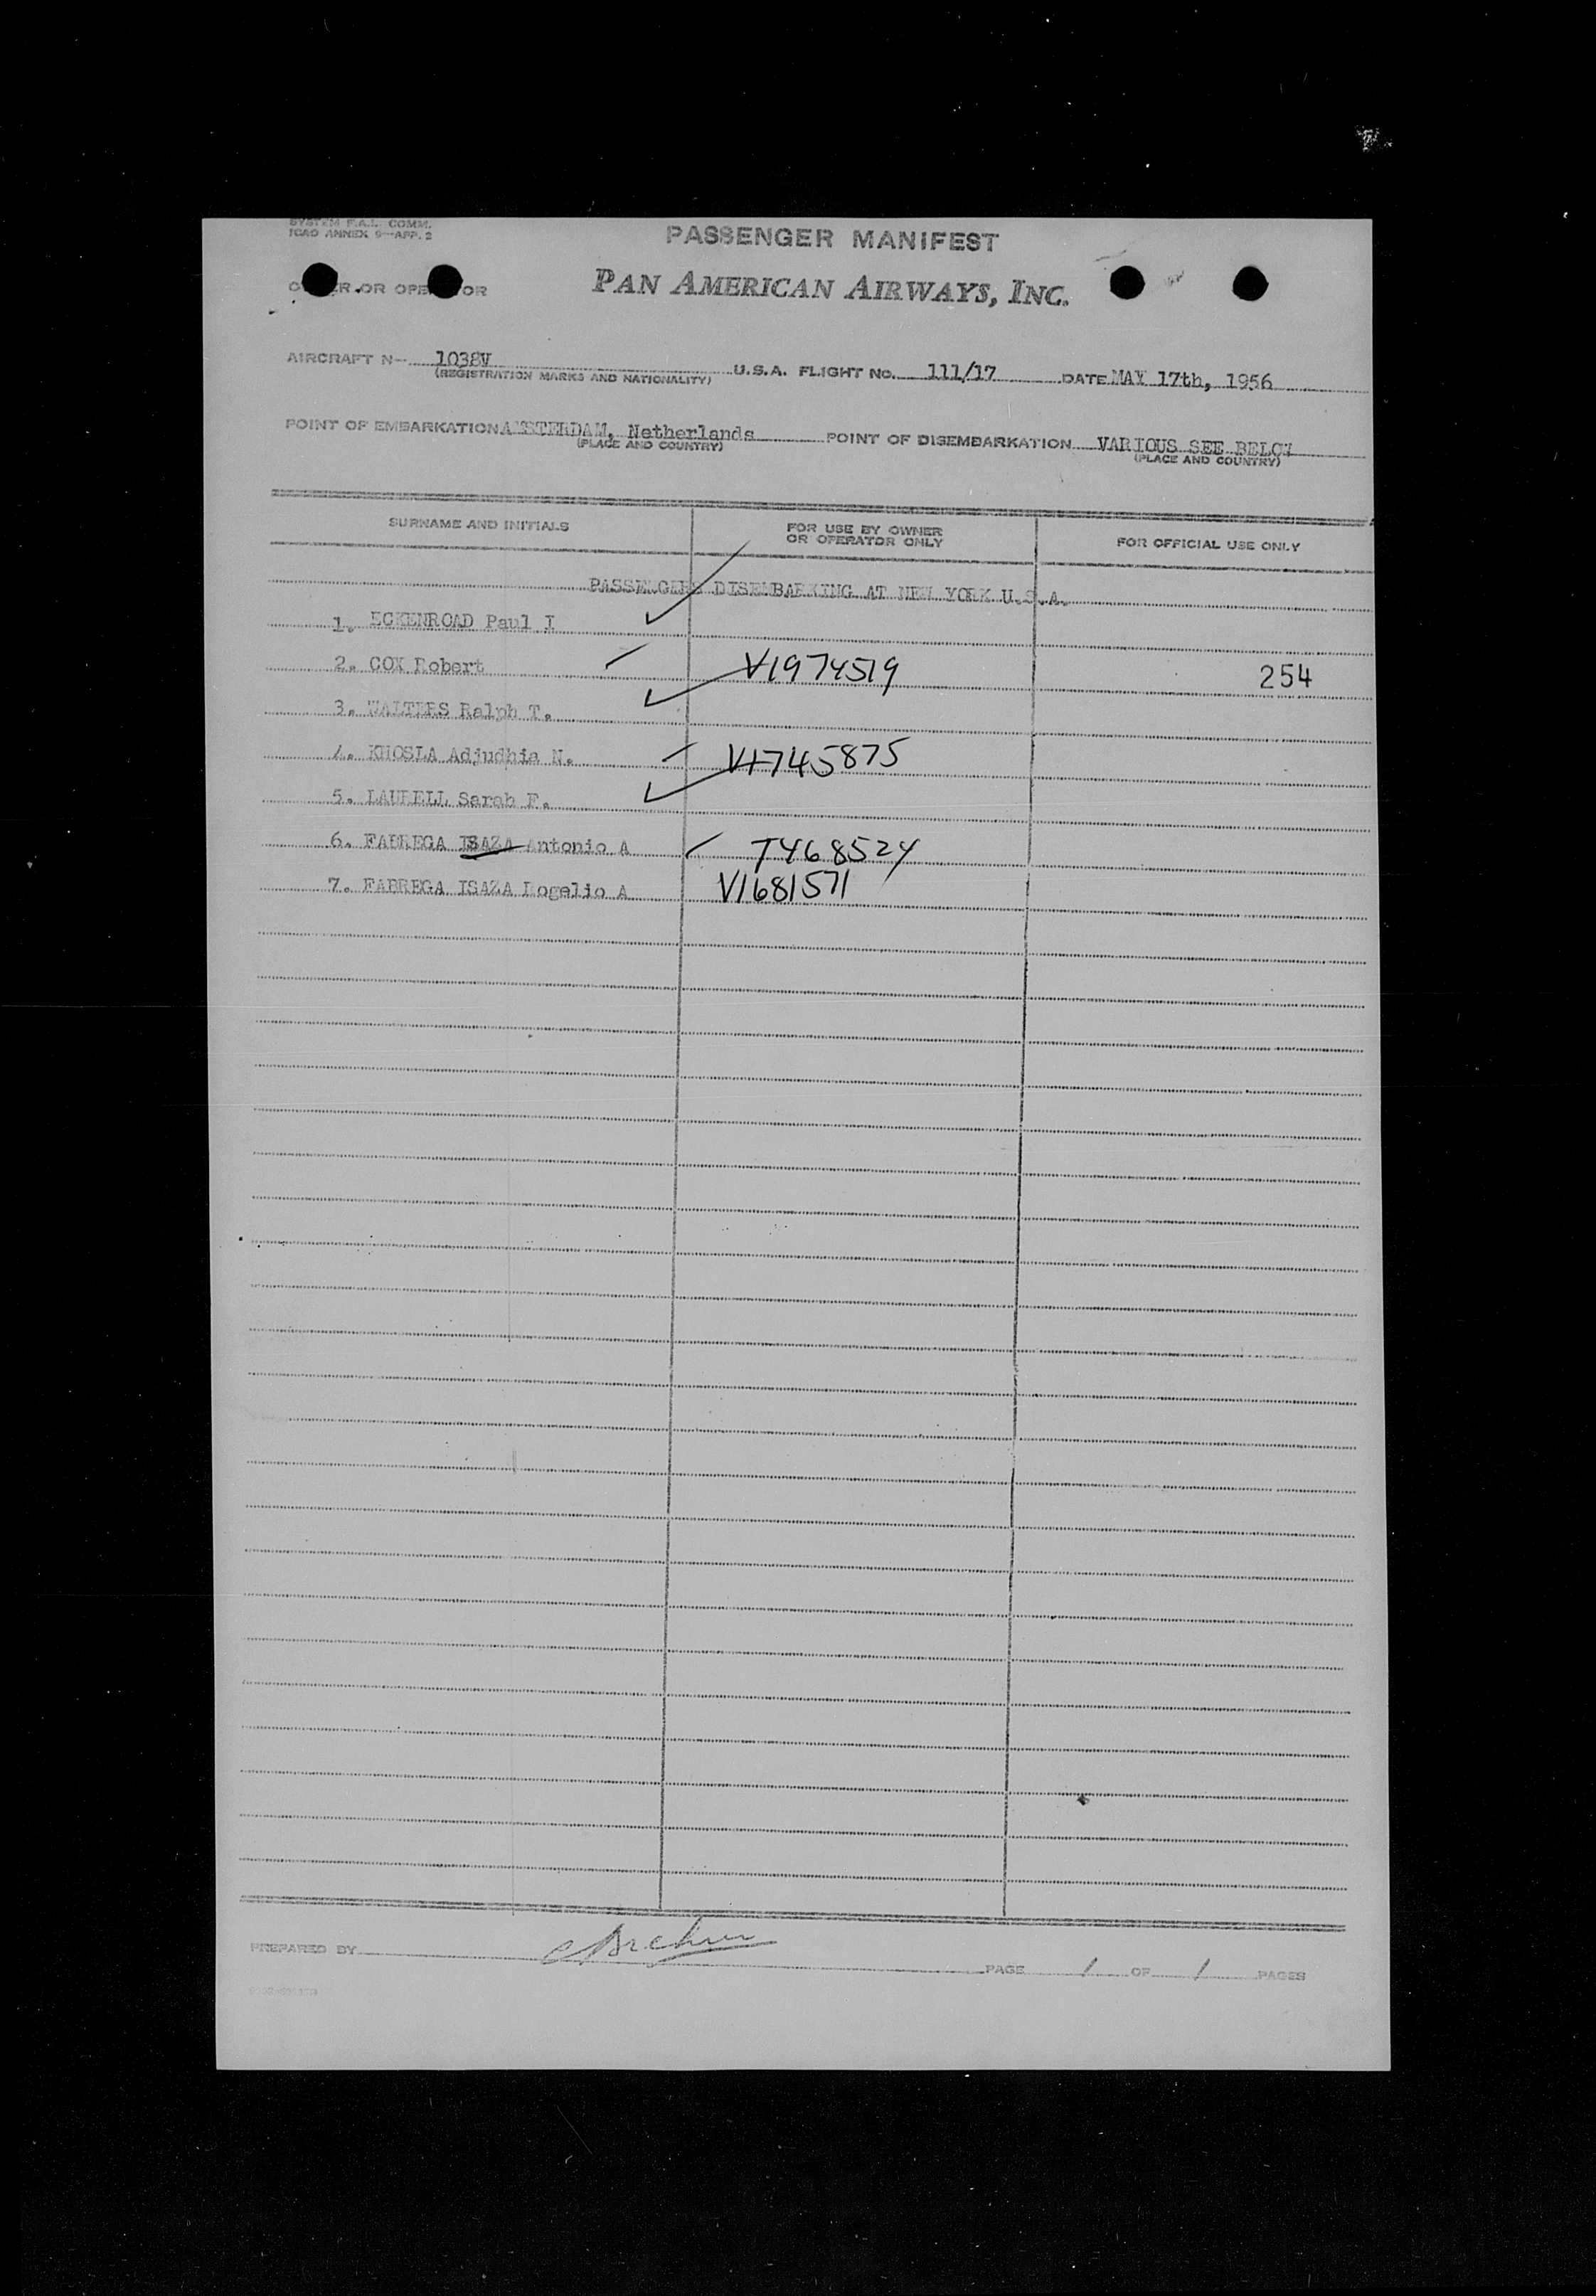 SYSTEM F.A.L. COMM.
ICAO ANNEX 9—APP. 2
PASSENGER MANIFEST
OR OPERATOR PAN AMERICAN AIRWAYS, INC.
AIRCRAFT N— 1038V U.S.A. FLIGHT NO. 111/17 DATE MAY 17th, 1956
(REGISTRATION MARKS AND NATIONALITY)
POINT OF EMBARKATION AMSTERDAM, Netherlands POINT OF DISEMBARKATION VARIOUS SEE BELOW
(PLACE AND COUNTRY) (PLACE AND COUNTRY)
SURNAME AND INITIALS FOR USE BY OWNER FOR OFFICIAL USE ONLY
OR OPERATOR ONLY
PASSENGERS DISEMBARKING AT NEW YORK U.S.A.
1. ECKENROAD Paul I
2. COX Robert V1974519 254
3. WALTERS Ralph T.
4. KHOSLA Adjudhia N. V1745875
5. LAURELL Sarah F.
6. FABREGA ISAZA Antonio A T468524
7. FABREGA ISAZA Rogelio A V1681571
PREPARED BY
PAGE 1 OF 1 PAGES